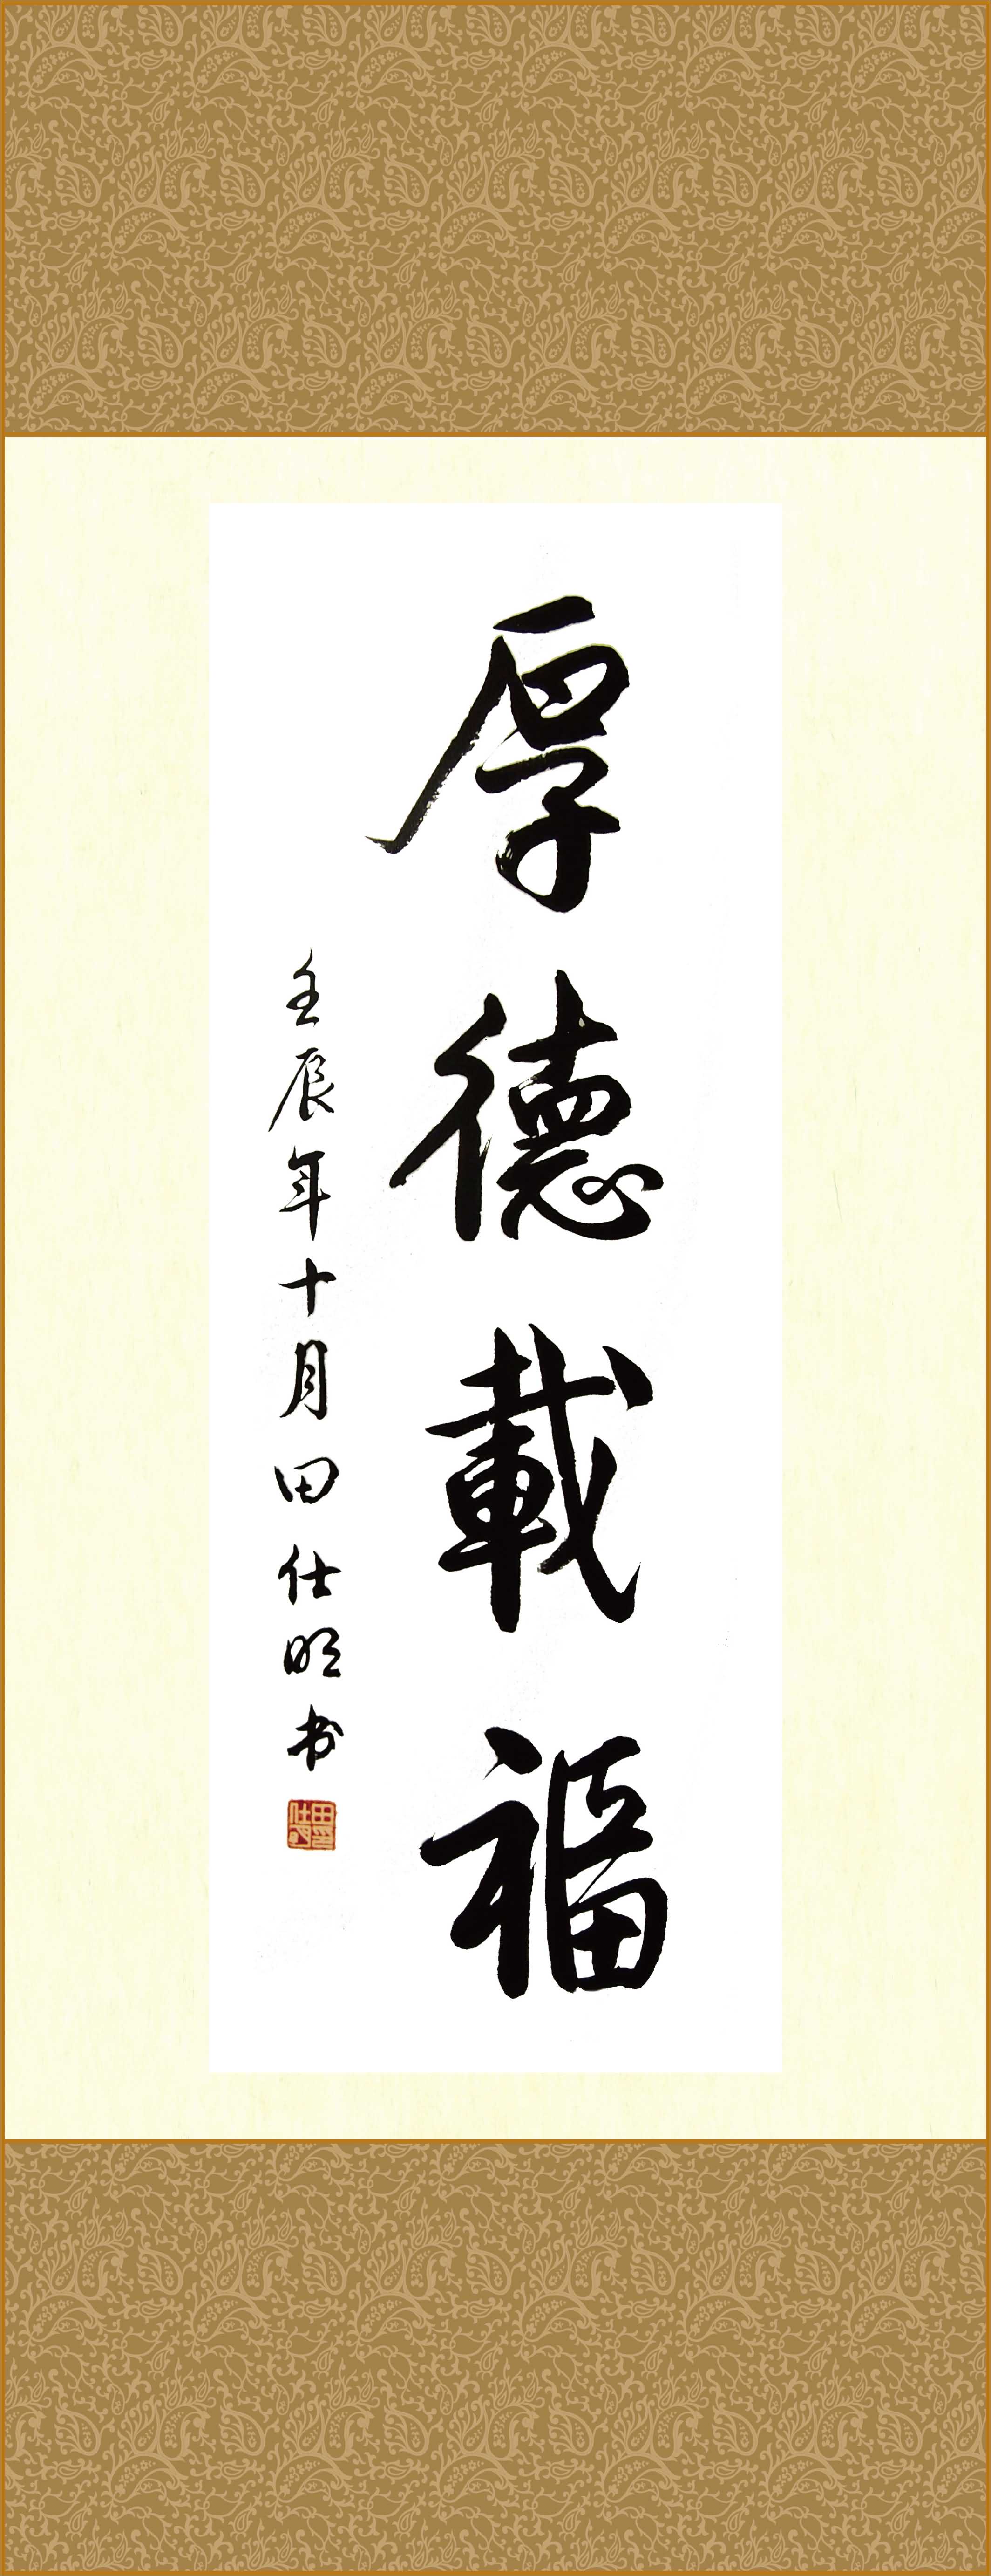 厚德載福
壬辰年十月田仕明书
田仕明印